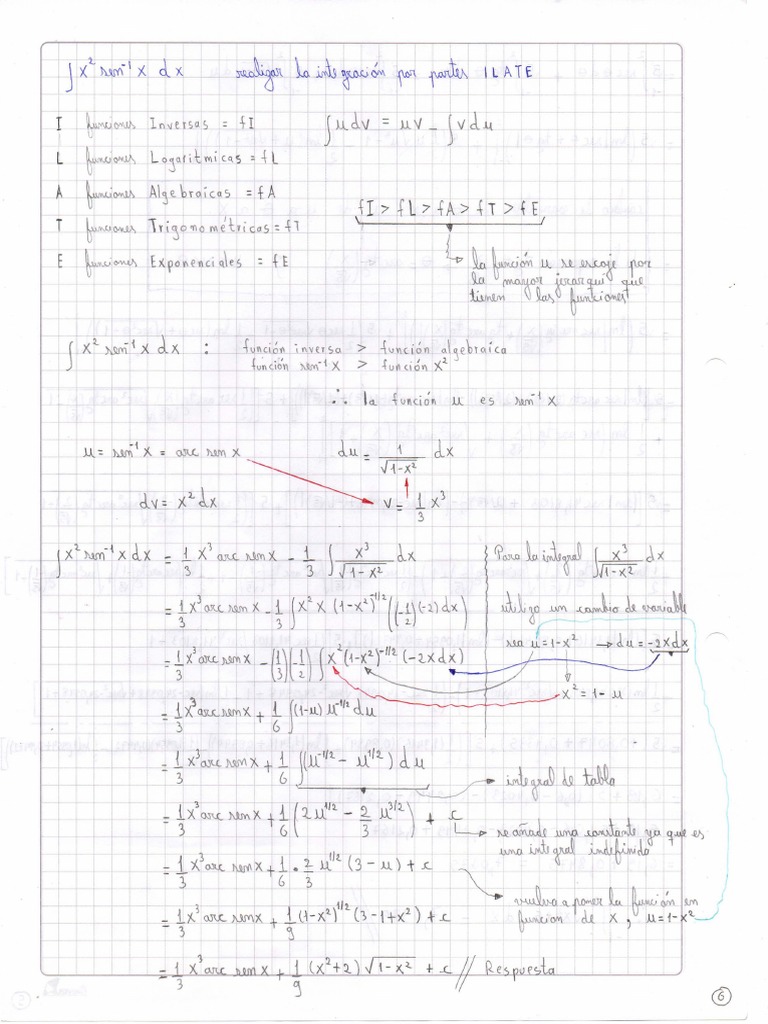 ∫ x² sen⁻¹ x dx realizar la integración por partes ILATE
I funciones Inversas = fI ∫ u dv = uv - ∫ v du
L funciones Logaritmicas = fL
A funciones Algebraicas = fA
T funciones Trigonométricas = fT
E funciones Exponenciales = fE
fI > fL > fA > fT > fE
la función u se escoje por
la mayor jerarqui que
tienen las funciones
∫ x² sen⁻¹ x dx : función inversa > función algebraica
función sen⁻¹ x > función x²
∴ la función u es sen⁻¹ x
u = sen⁻¹ x = arc sen x du = 1/√(1-x²) dx
dv = x² dx v = 1/3 x³
∫ x² sen⁻¹ x dx = 1/3 x³ arc sen x - 1/3 ∫ x³/√(1-x²) dx
= 1/3 x³ arc sen x - 1/3 ∫ x² x (1-x²)^(-1/2) ((-1/2)(-2) dx)
= 1/3 x³ arc sen x - (1/3)(-1/2) ∫ x² (1-x²)^(-1/2) (-2x dx)
= 1/3 x³ arc sen x + 1/6 ∫ (1-u) u^(-1/2) du
Para la integral ∫ x³/√(1-x²) dx
utilizo un cambio de variable
sea u = 1-x² → du = -2x dx
x² = 1 - u
= 1/3 x³ arc sen x + 1/6 ∫ (u^(-1/2) - u^(1/2)) du
integral de tabla
= 1/3 x³ arc sen x + 1/6 (2u^(1/2) - 2/3 u^(3/2)) + c
se añade una constante ya que es
una integral indefinida
= 1/3 x³ arc sen x + 1/6 · 2/3 u^(1/2) (3 - u) + c
vuelvo a poner la función en
funcion de x, u = 1-x²
= 1/3 x³ arc sen x + 1/9 (1-x²)^(1/2) (3 - 1 + x²) + c
= 1/3 x³ arc sen x + 1/9 (x² + 2) √(1-x²) + c // Respuesta
6